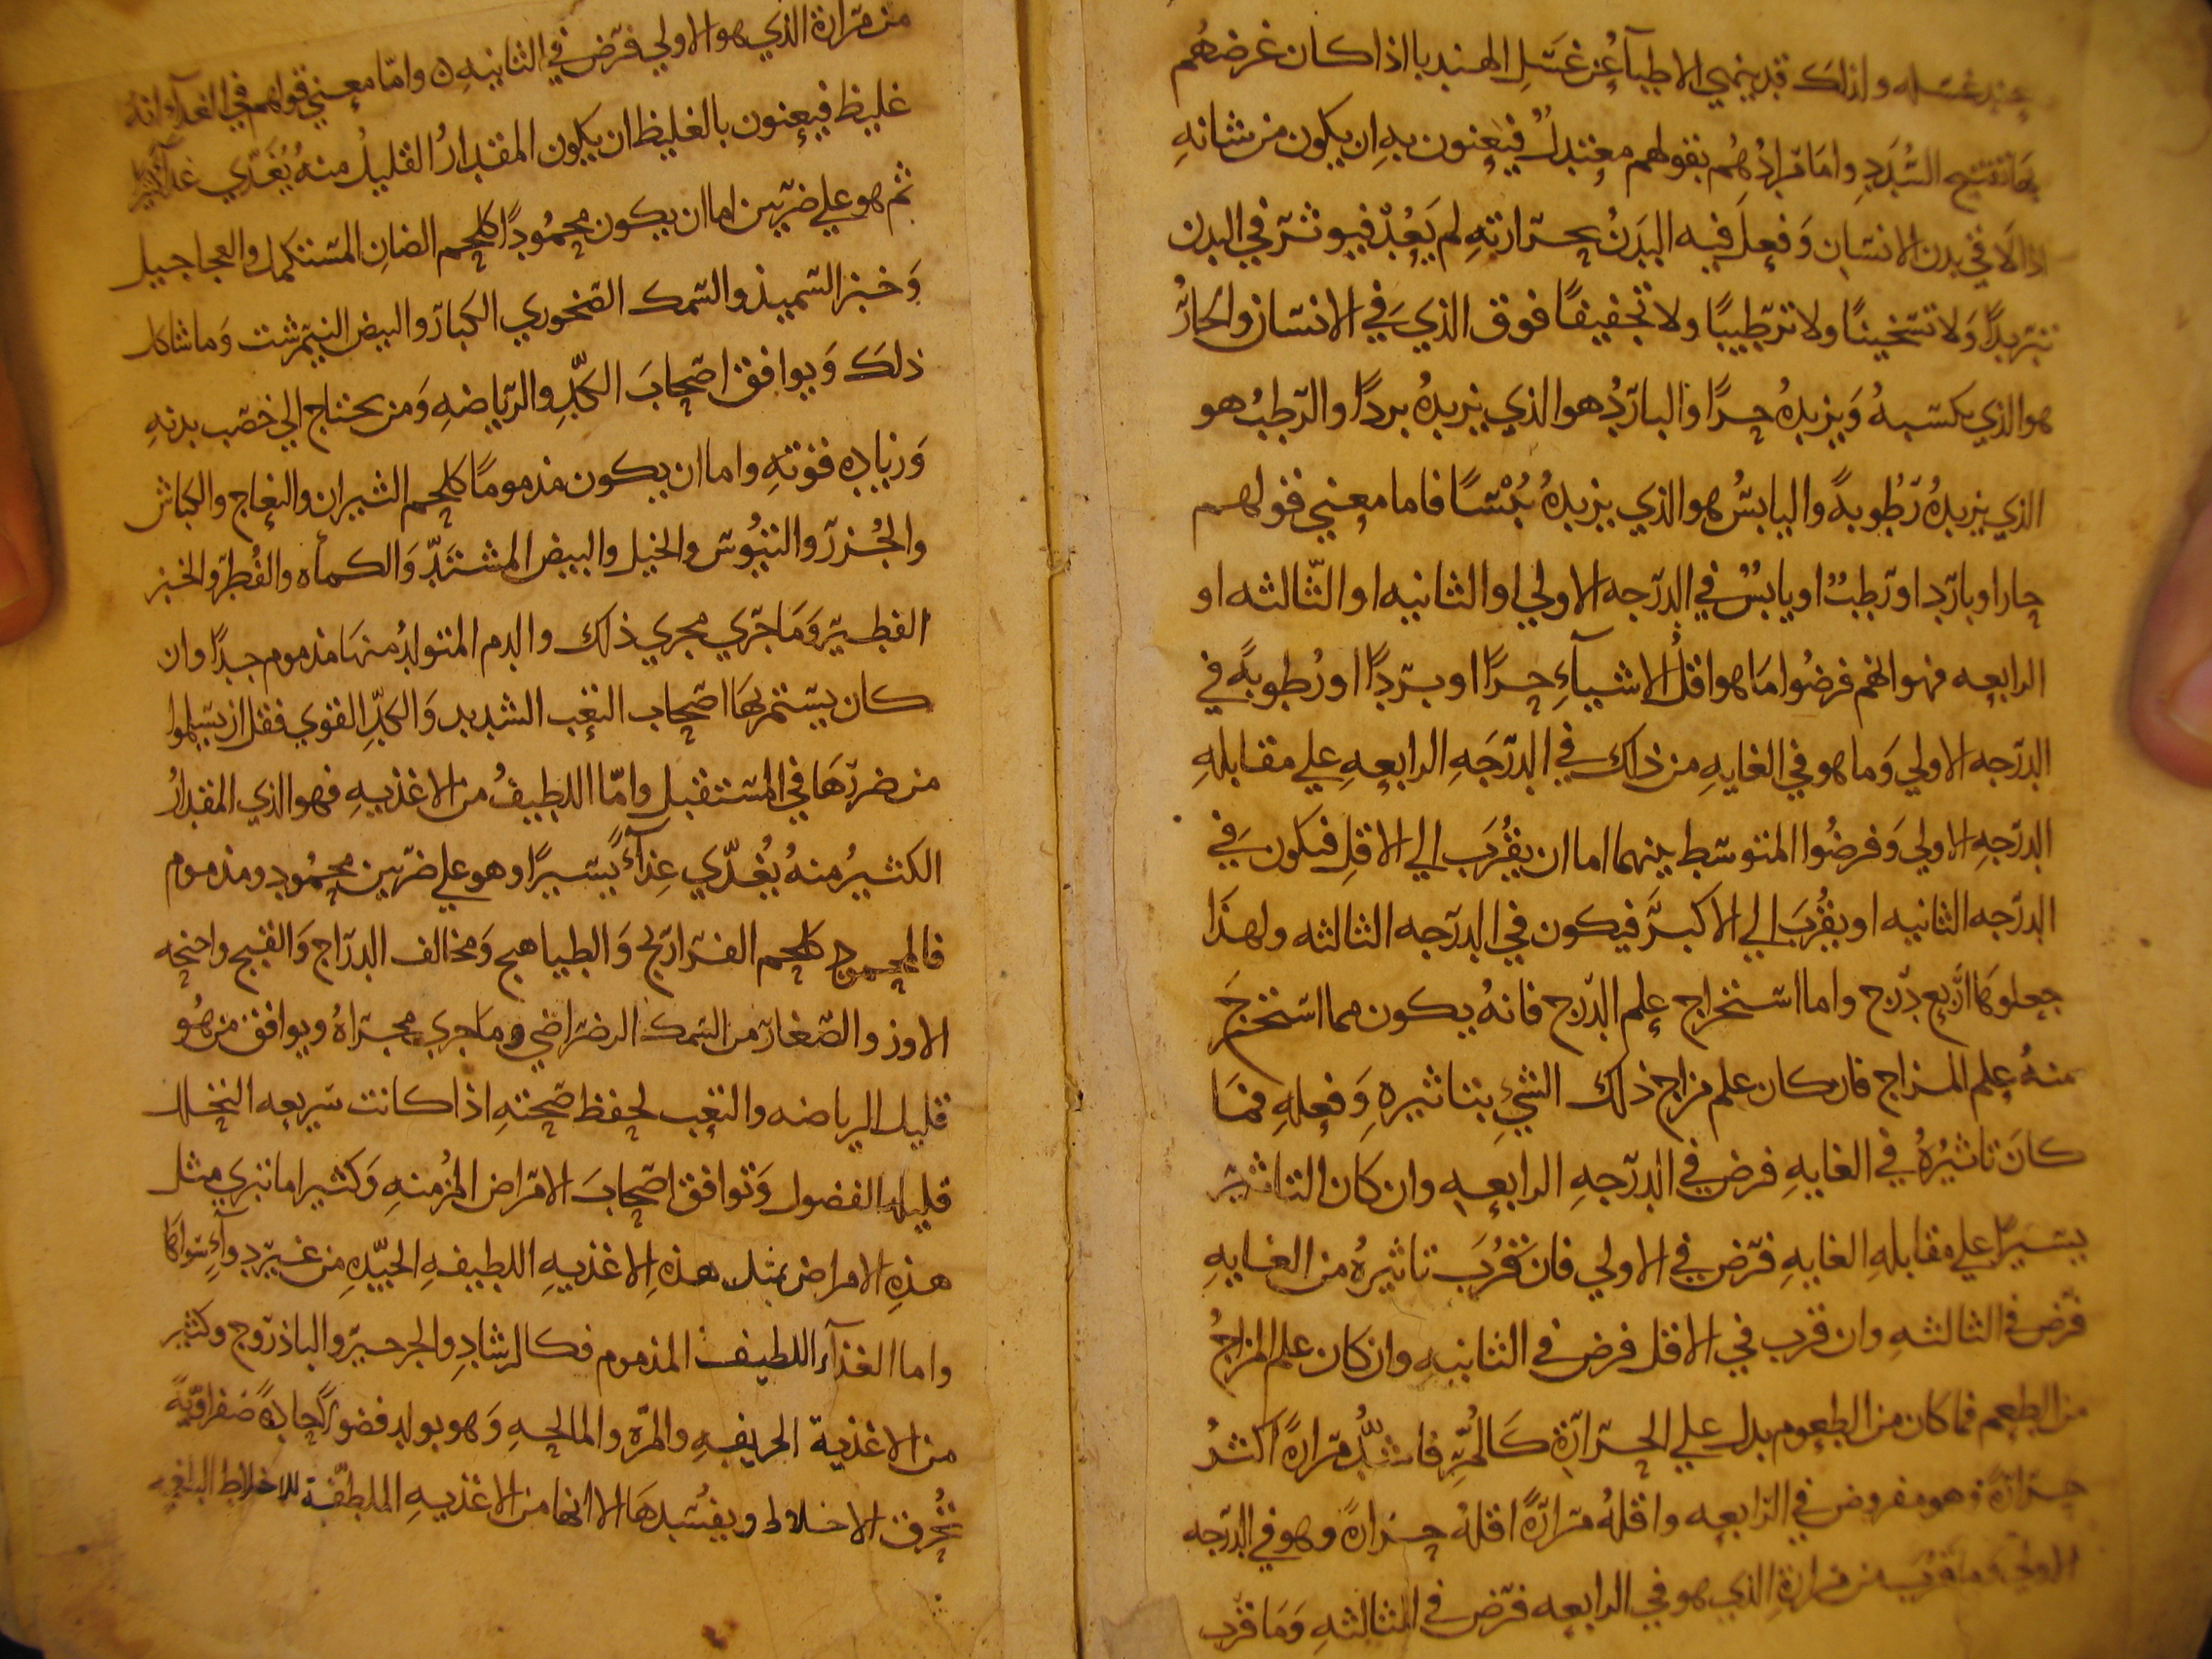 عند غسله ولذلك قد ينهي الاطبآء عن غسل الهندبا اذا كان غرضهم
بها تفتيح السدد واما مرادهم بقولهم معتدل فيعنون به ان يكون من شانه
اذا لاقي بدن الانسان وفعل فيه البدن بحرارته لم يعد فيوثر في البدن
تبريدا ولا تسخينا ولا ترطيبا ولا تجفيفا فوق الذي في الانسان والحار
هو الذي يكسبه ويزيده حرا والبارد هو الذي يزيده بردا والرطب هو
الذي يزيده رطوبة واليابس هو الذي يزيده يبسا فاما معني قولهم
حار او بارد او رطب او يابس في الدرجه الاولي او الثانيه او الثالثه او
الرابعه فهو انهم فرضوا ما هو اقل الاشيآء حرا او بردا او رطوبة في
الدرجه الاولي وما هو في الغايه من ذلك في الدرجه الرابعه علي مقابله
الدرجه الاولي وفرضوا المتوسط بينهما اما ان يقرب الي الاقل فيكون في
الدرجه الثانيه او يقرب الي الاكبر فيكون في الدرجه الثالثه ولهذا
جعلوها اربع درج واما استخراج علم الدرج فانه يكون مما استخرج
منه علم المزاج فان كان علم مزاج ذلك الشيء بتاثيره وفعله فما
كان تاثيره في الغايه فرض في الدرجه الرابعه وان كان التاثير
يسيرا علي مقابله الغايه فرض في الاولي فان قرب تاثيره من الغايه
فرض في الثالثه وان قرب في الاقل فرض في الثانيه وان كان علم المزاج
من الطعم فما كان من الطعوم يدل علي الحرارة كالمر فاشد مرارة اكثر
حرارة وهو مفروض في الرابعه واقله مرارة اقله حرارة وهو في الدرجه
الاولي وما قرب من مرارة الذي هو في الرابعه فرض في الثالثه وما قرب
من مرارة الذي هو الاولي فرض في الثانيه واما معني قولهم في الغدآ انه
غليظ فيعنون بالغليظ ان يكون المقدار القليل منه يغدي غدآ كثيرا
ثم هو علي ضربين اما ان يكون محمودا كلحم الضان المستكمل والعجاجيل
وخبز السميذ والسمك الصخوري الكبار والبيض النيمرشت وما شاكل
ذلك ويوافق اصحاب الكد والرياضه ومن يحتاج الي خصب بدنه
وزياده قوته واما ان يكون مذموما كلحم الثيران والنعاج والكباش
والجزر والتيوس والخيل والبيض المشتد والكمأه والفطر والخبز
الفطير وما جري مجري ذلك والدم المتولد منها مذموم جدا وان
كان يستمربها اصحاب التعب الشديد والكد القوي فقل ان يسلموا
من ضررها في المستقبل واما اللطيف من الاغذيه فهو الذي المقدار
الكثير منه يغدي غذآء يسيرا وهو علي ضربين محمود ومذموم
فالمحمود كلحم الفراريج والطياهيج ومخالف الدراج والقبج واجنحه
الاوز والصغار من السمك الرضراضي وما جري مجراه ويوافق من هو
قليل الرياضه والتعب لحفظ صحته اذا كانت سريعه التحلل
قليله الفضول وتوافق اصحاب الامراض المزمنه وكثيرا ما تبري مثل
هذه الامراض بمثل هذه الاغذيه اللطيفه الجيده من غير دوآء سواها
واما الغذآء اللطيف المذموم فكالرشاد والجرجير والباذروج وكثير
من الاغذية الحريفه والمره والمالحه وهو يولد فضولا حادة صفراوية
تحرق الاخلاط ويفسدها الا انها من الاغذيه الملطفة للاخلاط